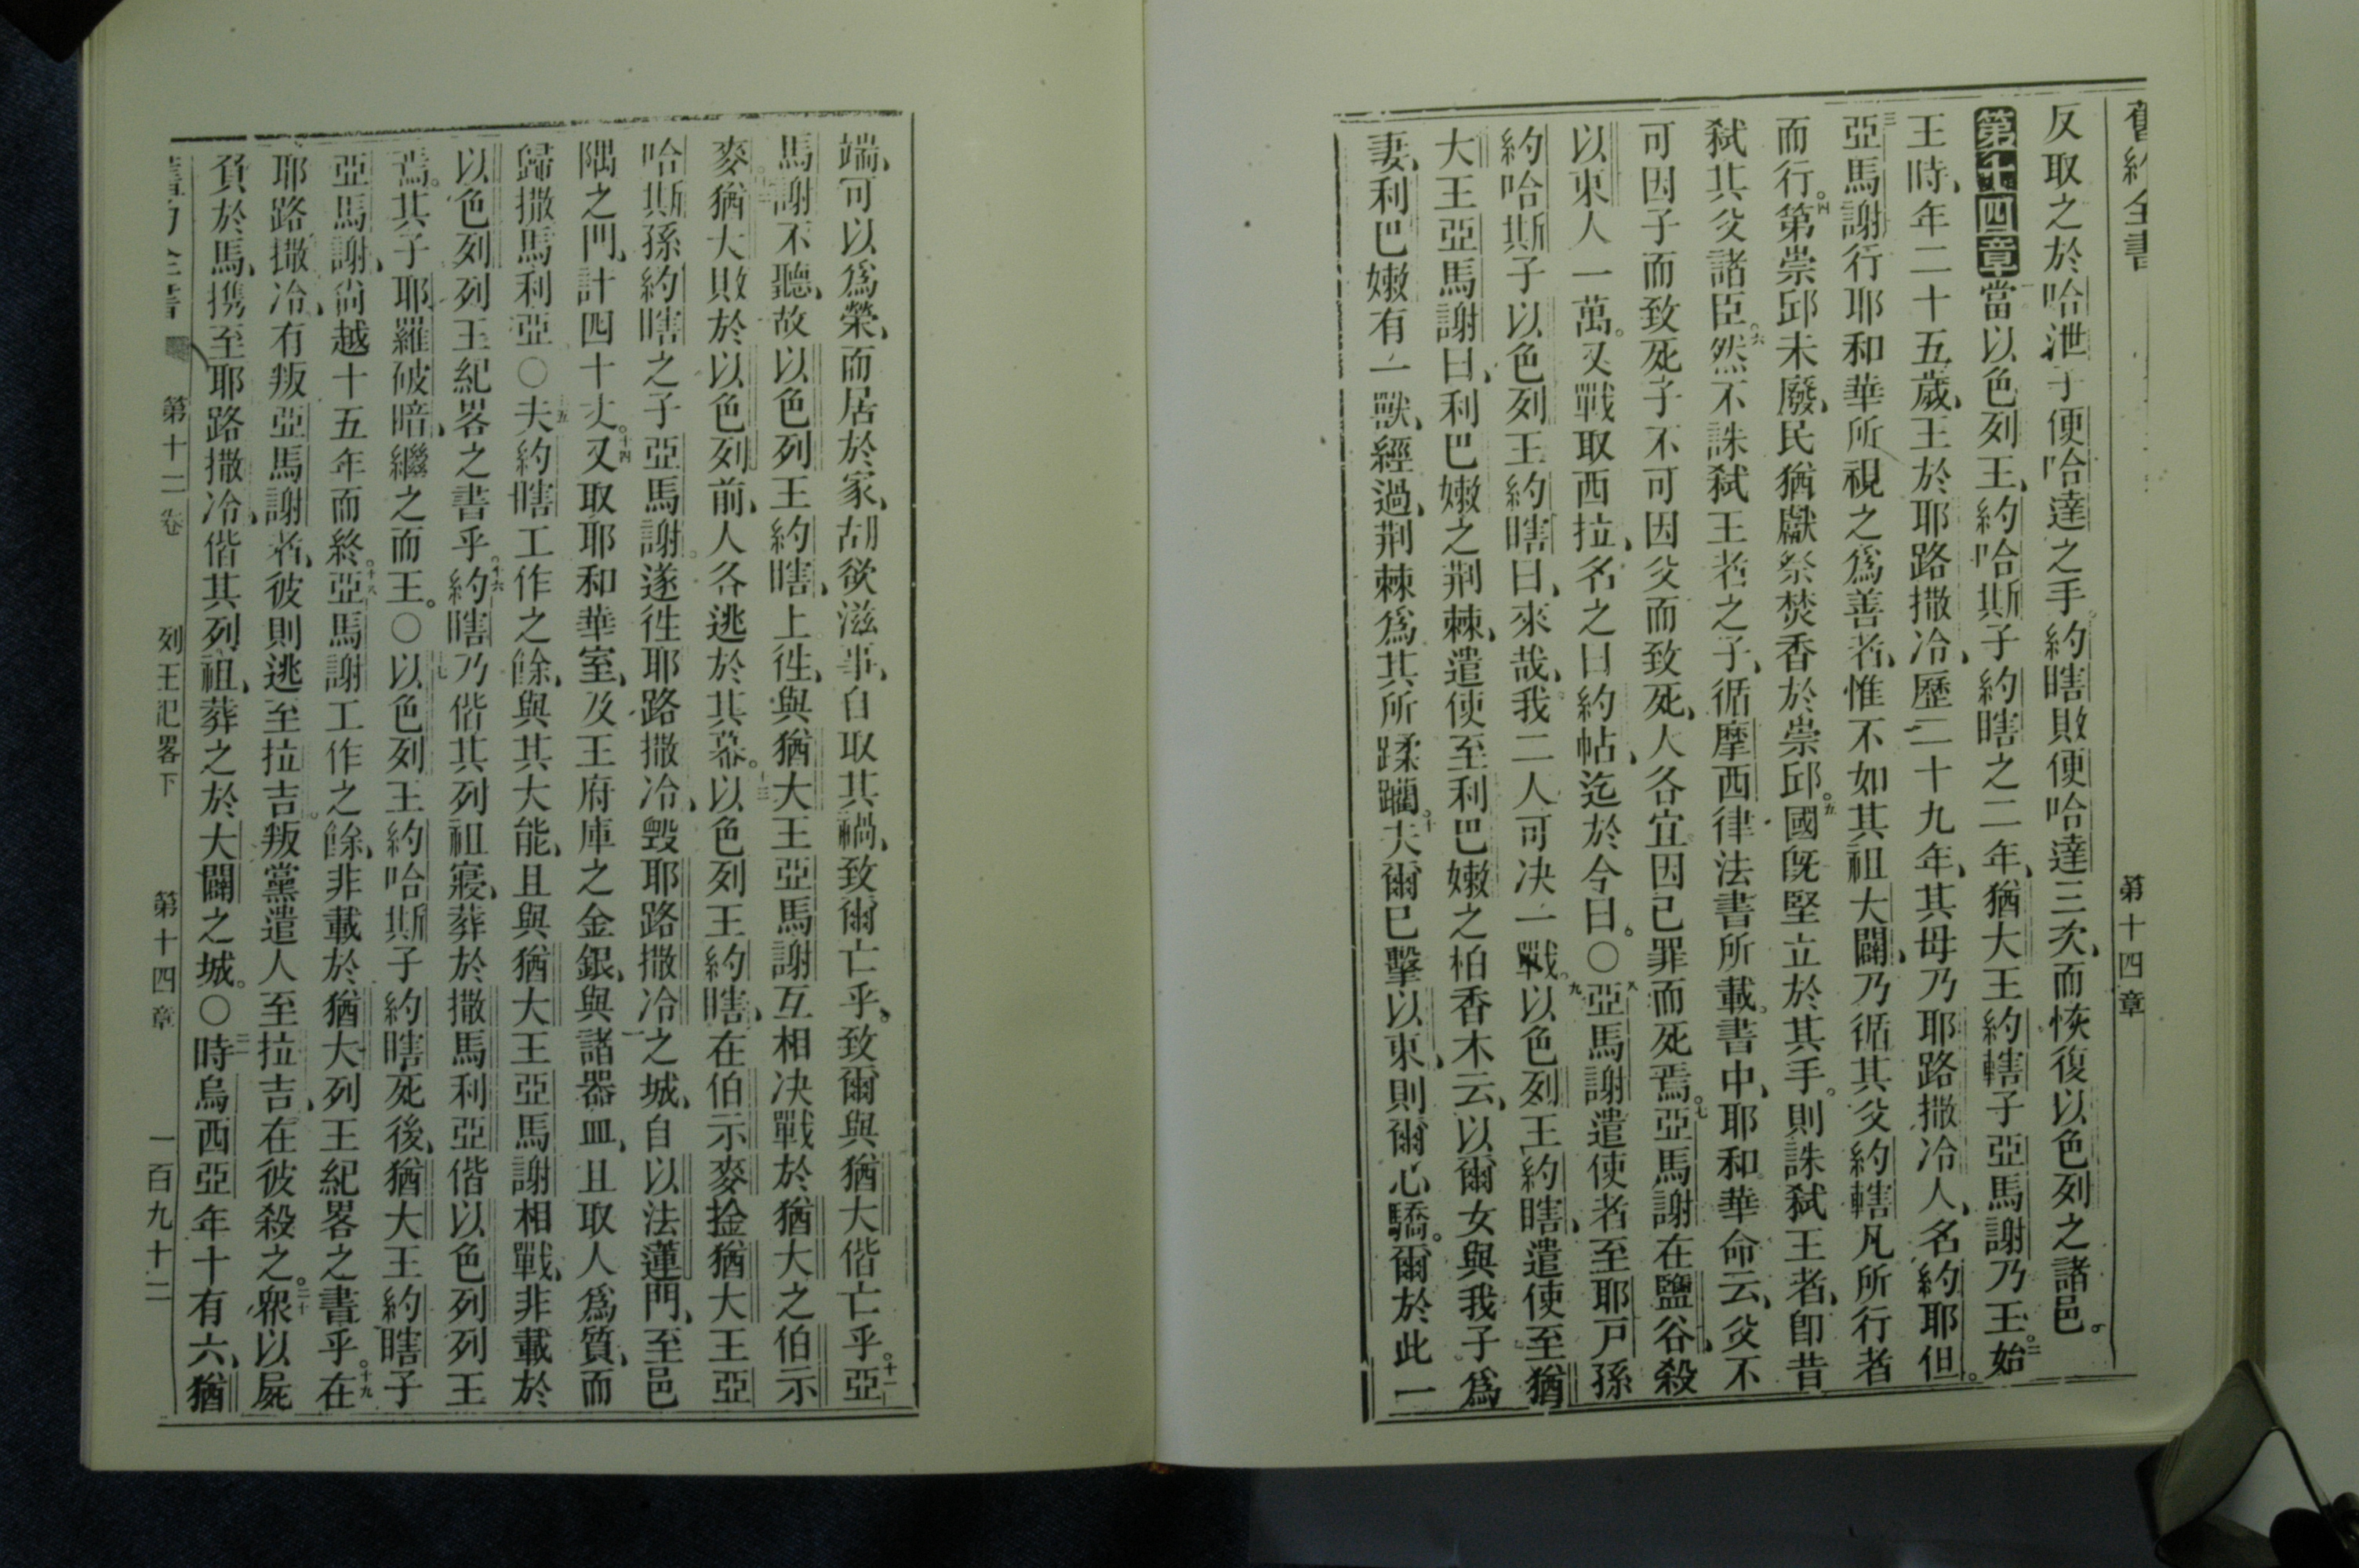 舊約全書
第十四章
反取之於哈泄子便哈達之手。約瞎敗便哈達三次、而恢復以色列之諸邑。
第十四章當以色列王、約哈斯子約瞎之二年、猶大王約轄子亞馬謝乃王。二始
王時、年二十五歲、王於耶路撒冷、歷二十九年、其母乃耶路撒冷人、名約耶但。
三亞馬謝行耶和華所視之爲善者、惟不如其祖大闢、乃循其父約轄凡所行者
而行。四第崇邱未廢、民猶獻祭焚香於崇邱。五國旣堅立於其手。則誅弑王者、卽昔
弑其父諸臣。六然不誅弑王者之子、循摩西律法書所載。書中、耶和華命云、父不
可因子而致死子不可因父而致死、人各宜因己罪而死焉。七亞馬謝在鹽谷、殺
以東人一萬。又戰取西拉、名之曰約帖、迄於今日。〇八亞馬謝遣使者至耶戸孫
約哈斯子以色列王約瞎曰、來哉、我二人可決一戰。九以色列王約瞎、遣使至猶
大王亞馬謝曰、利巴嫩之荆棘、遣使至利巴嫩之柏香木云、以爾女與我子爲
妻、利巴嫩有一獸、經過、荆棘爲其所蹂躪。十夫爾已擊以東、則爾心驕。爾於此一
端、可以爲榮、而居於家、胡欲滋事、自取其禍、致爾亡乎、致爾與猶大偕亡乎。十一亞
馬謝不聽、故以色列王約瞎、上徃、與猶大王亞馬謝互相決戰於猶大之伯示
麥。十二猶大敗於以色列前、人各逃於其幕。十三以色列王約瞎、在伯示麥擒猶大王亞
哈斯孫約瞎之子亞馬謝。遂徃耶路撒冷、毀耶路撒冷之城、自以法蓮門、至邑
隅之門、計四十丈。十四又取耶和華室、及王府庫之金銀、與諸器皿、且取人爲質、而
歸撒馬利亞〇十五夫約瞎工作之餘、與其大能、且與猶大王亞馬謝相戰、非載於
以色列列王紀畧之書乎。十六約瞎乃偕其列祖寢、葬於撒馬利亞偕以色列列王
焉。其子耶羅破暗、繼之而王。〇十七以色列王約哈斯子約瞎死後、猶大王約瞎子
亞馬謝、尚越十五年而終。十八亞馬謝工作之餘、非載於猶大列王紀畧之書乎。十九在
耶路撒冷、有叛亞馬謝者、彼則逃至拉吉。叛黨遣人至拉吉、在彼殺之。二十衆以屍
負於馬、携至耶路撒冷、偕其列祖、葬之於大闢之城。〇時烏西亞年十有六、猶
第十二卷
列王紀畧下
第十四章
一百九十二